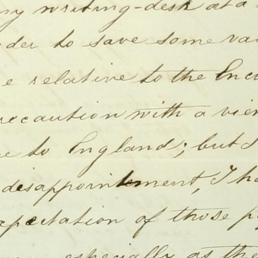 my writing-desk at a
order to save some va
e relative to the Enc
recaution with a vie
e to England; but I
disappointment, I ha
xpectation of those p
especially as the